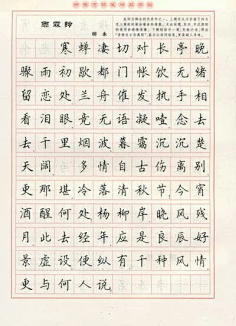 雨霖铃
柳永
寒蝉凄切对长亭晚
骤雨初歇都门帐饮无绪
留恋处兰舟催发执手相
看泪眼竟无语凝噎念去
去千里烟波暮霭沉沉楚
天阔 多情自古伤离别
更那堪冷落清秋节今宵
酒醒何处杨柳岸晓风残
月此去经年应是良辰好
景虚设便纵有千种风情
更与何人说